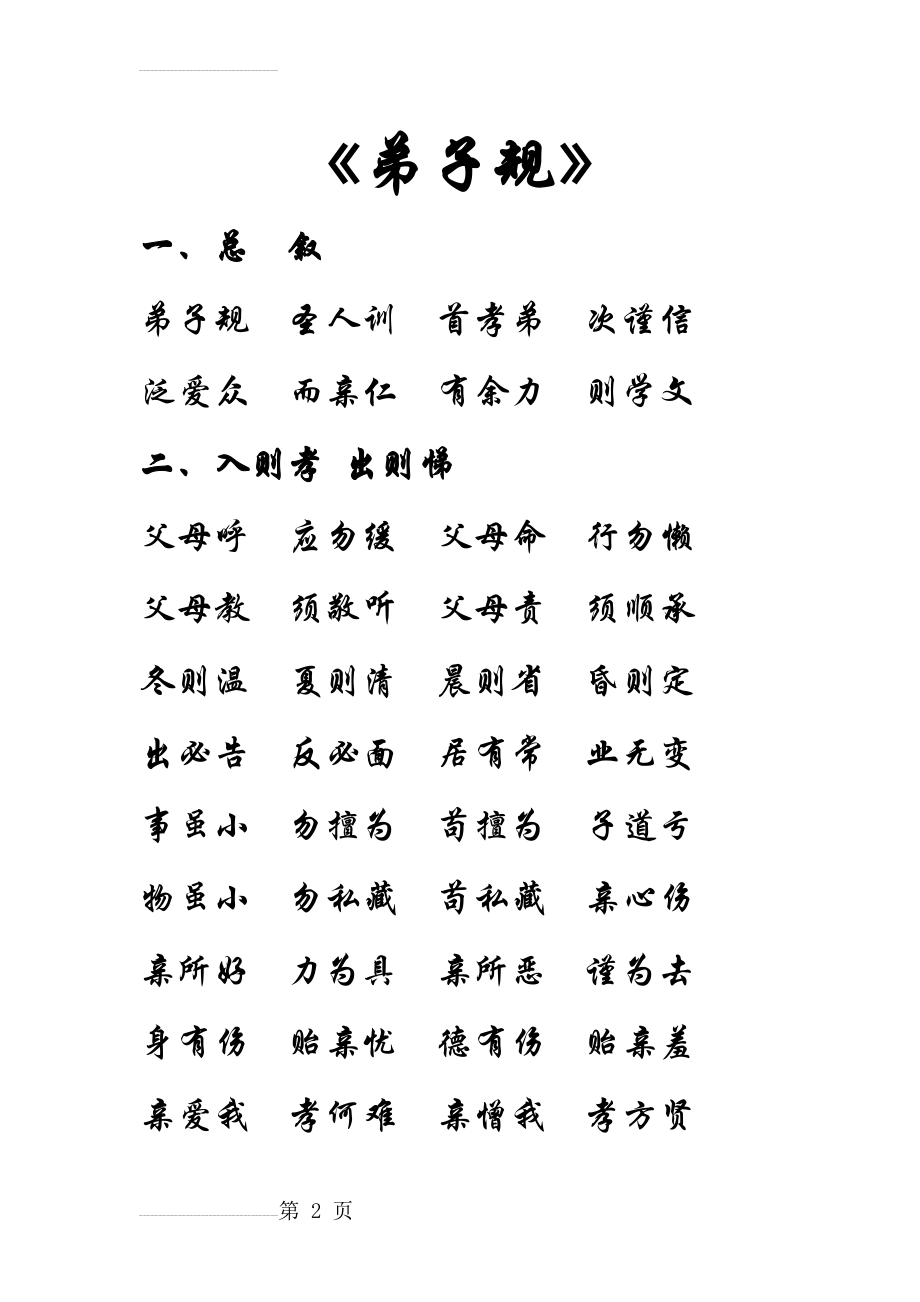 《弟子规》
一、总　叙
弟子规　圣人训　首孝弟　次谨信
泛爱众　而亲仁　有余力　则学文
二、入则孝 出则悌
父母呼　应勿缓　父母命　行勿懒
父母教　须敬听　父母责　须顺承
冬则温　夏则清　晨则省　昏则定
出必告　反必面　居有常　业无变
事虽小　勿擅为　苟擅为　子道亏
物虽小　勿私藏　苟私藏　亲心伤
亲所好　力为具　亲所恶　谨为去
身有伤　贻亲忧　德有伤　贻亲羞
亲爱我　孝何难　亲憎我　孝方贤
第 2 页